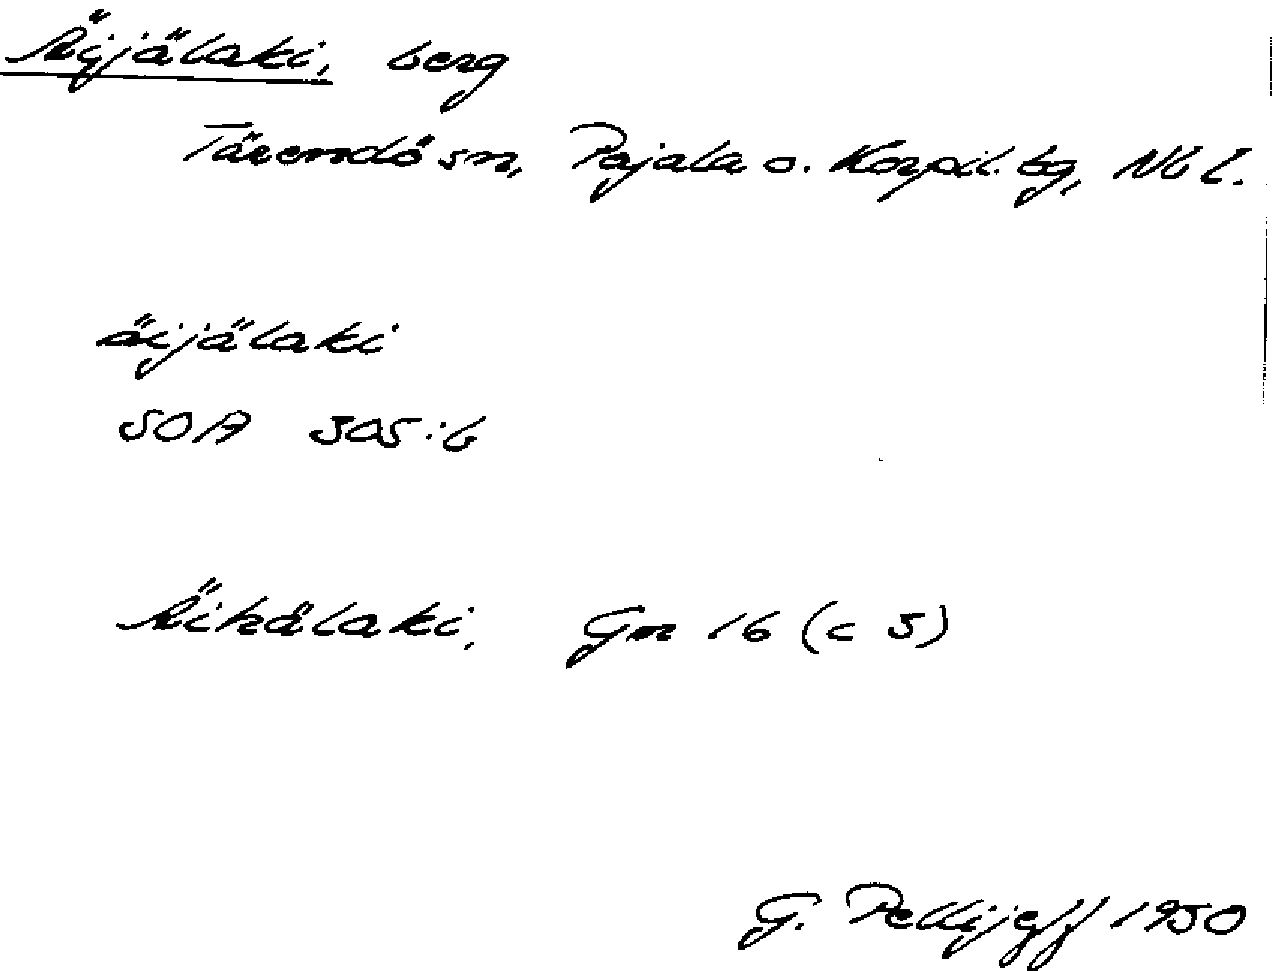 Äijälaki, berg
Tärendö sn, Pajala o. Korpil. tg, Nb l.
äijälaki
SOA 305:6
Äihälaki, Gm 16 (c 5)
G. Pellijeff 1950